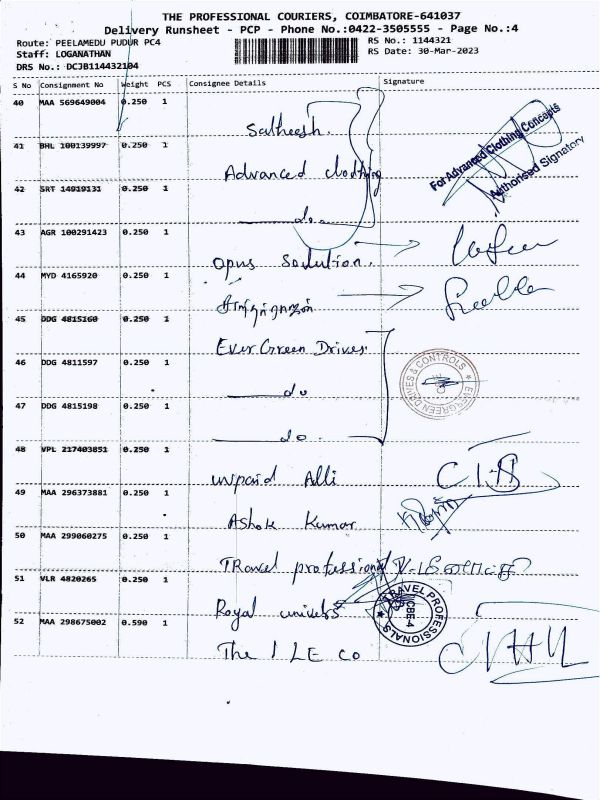 THE PROFESSIONAL COURIERS, COIMBATORE-641037
Delivery Runsheet - PCP - Phone No.:0422-3505555 - Page No.:4
Route: PEELAMEDU PUDUR PC4
RS No.: 1144321
Staff: LOGANATHAN
RS Date: 30-Mar-2023
DRS No.: DCJB114432104
S No Consignment No Weight PCS Consignee Details Signature
40 MAA 569649004 0.250 1
Satheesh.
For Advanced Clothing Concepts
Authorised Signatory
41 BHL 100139997 0.250 1
Advanced clothing
42 SRT 14919131 0.250 1
do.
43 AGR 100291423 0.250 1
Opus Solution.
44 MYD 4165920 0.250 1
45 DDG 4815160 0.250 1
Ever Green Drives
46 DDG 4811597 0.250 1
do
EVERGREEN DRIVES & CONTROLS
47 DDG 4815198 0.250 1
do.
48 VPL 217403851 0.250 1
unpaid Alli
49 MAA 296373881 0.250 1
Ashok Kumar
50 MAA 299060275 0.250 1
TRavel professional
51 VLR 4820265 0.250 1
Royal univers
TRAVEL PROFESSIONALS
CBE-4
52 MAA 298675002 0.590 1
The I LE co